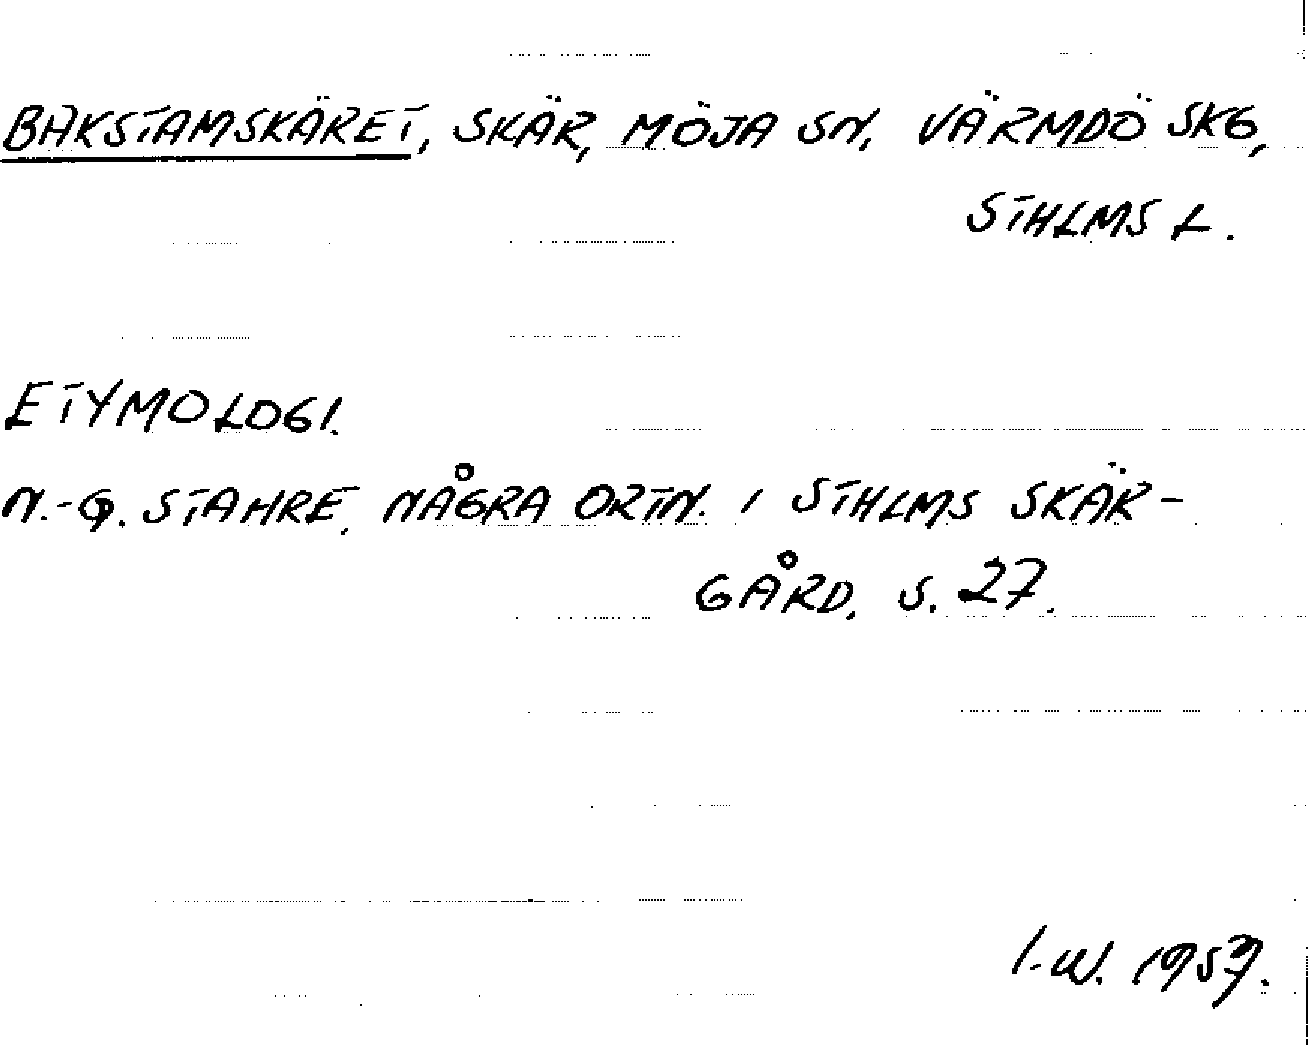 BAKSTAMSKÄRET, SKÄR, MÖJA SN, VÄRMDÖ SKG,
STHLMS L.
ETYMOLOGI.
N.-G. STAHRE, NÅGRA ORTN. I STHLMS SKÄR-
GÅRD, S. 27.
I.W. 1957.